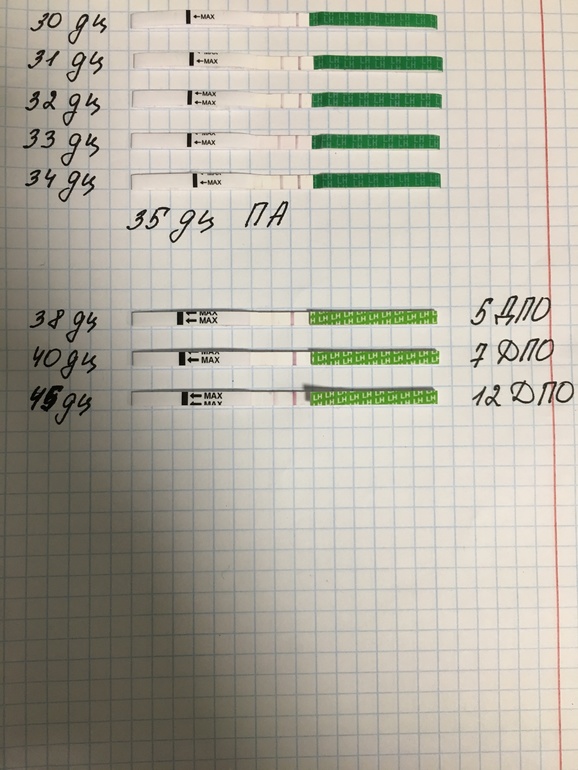 30 дц ←MAX
31 дц ←MAX
32 дц ←MAX ←MAX
33 дц ←MAX
34 дц ←MAX
35 дц ПА
38 дц MAX ← MAX LH LH LH LH LH LH LH LH 5 ДПО
40 дц ← MAX LH LH LH LH LH LH LH LH 7 ДПО
45 дц ← MAX ← MAX LH LH LH LH LH LH LH LH 12 ДПО